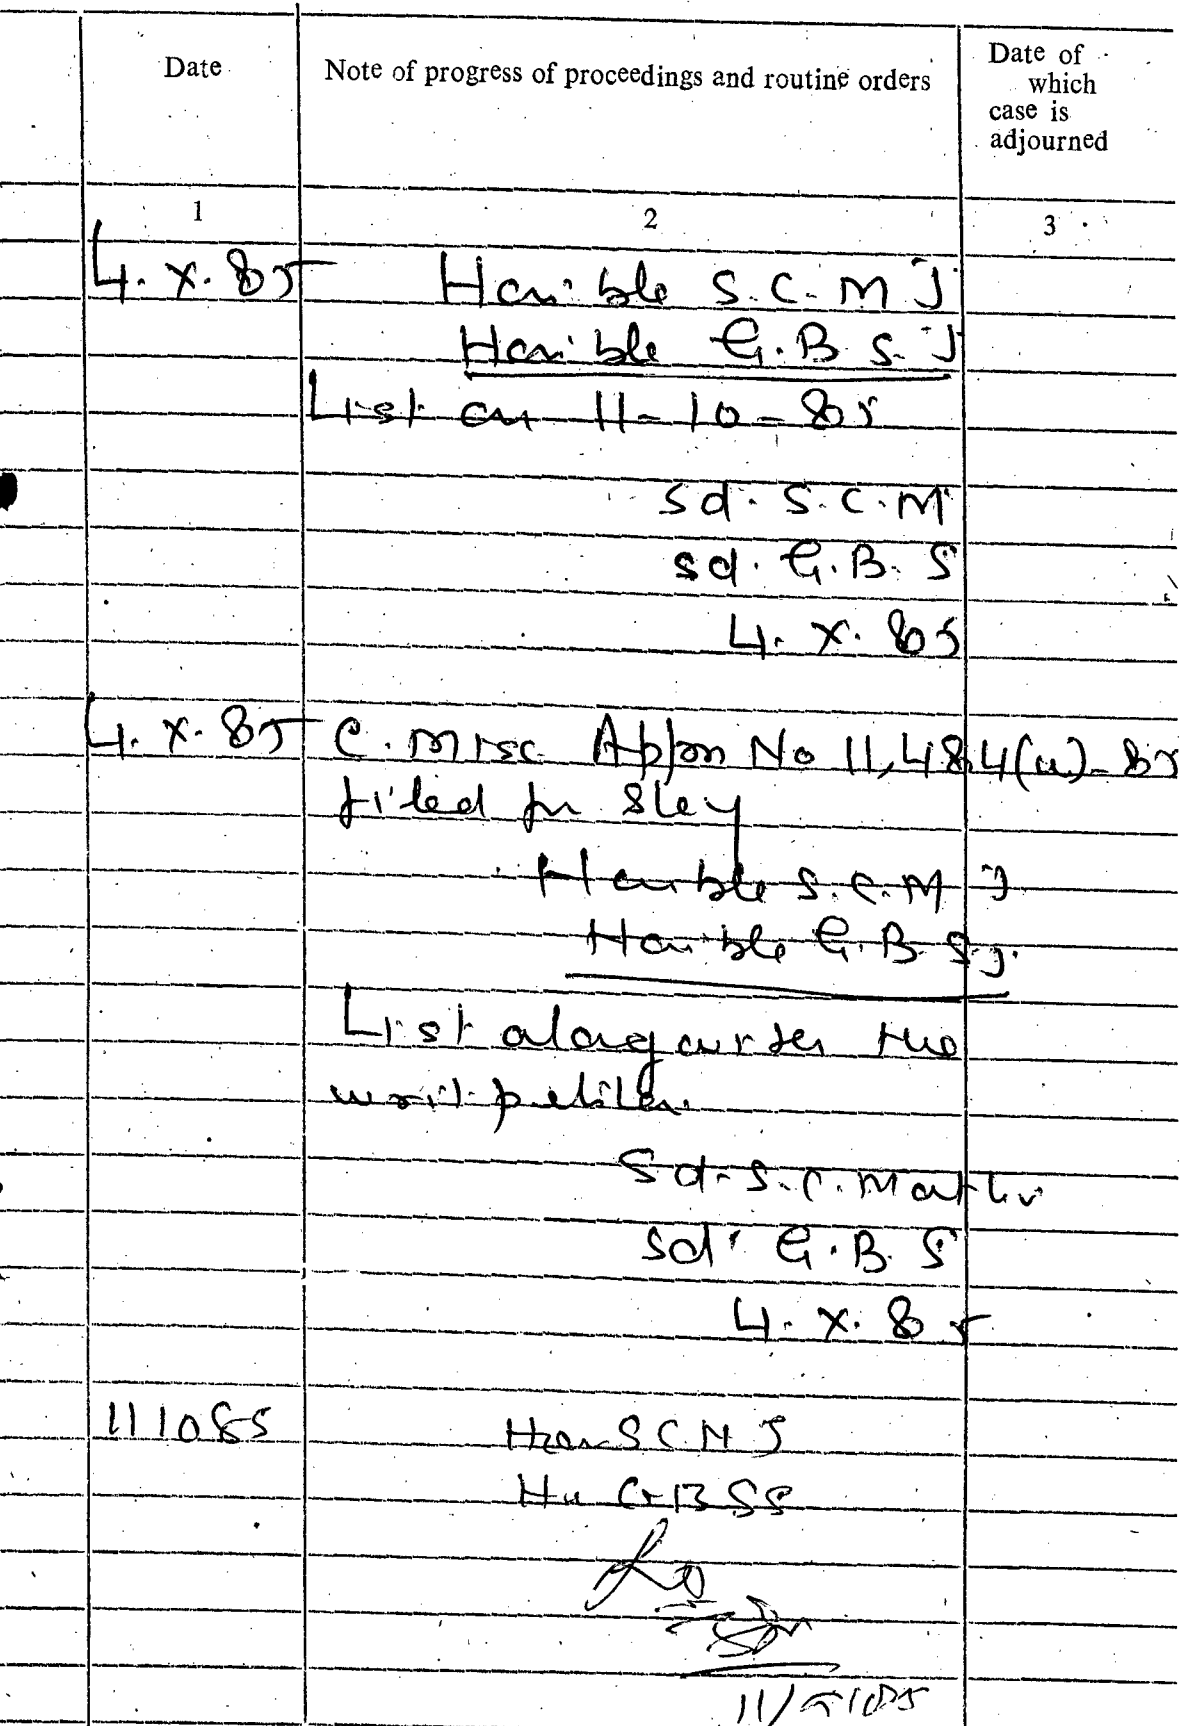 Date
Note of progress of proceedings and routine orders
Date of
which
case is
adjourned
1
2
3
4.X.85 Hon'ble S.C.M J
Hon'ble G.B.S. J
List on 11-10-85
Sd. S.C.M
Sd. G.B.S
4.X.85
4.X.85 C.Misc. Appln No 11,484(w)-85
filed for Stay
Hon'ble S.C.M J
Hon'ble G.B.S J.
List alongwith the
writ petition
Sd. S.C. Mathur
Sd. G.B.S
4.X.85
11 10 85 Hon S C M J
G B S